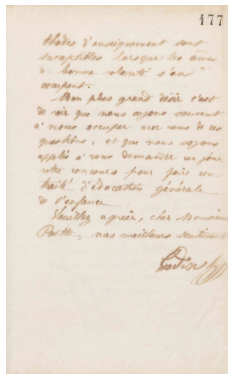 477
thodes d'enseignement sont
susceptibles lorsque les âmes
de bonne volonté s'en
occupent.
Mon plus grand désir c'est
de voir que nous ayons souvent
à nous occuper avec vous de ces
questions, et que nous soyons
appelés à vous demander un jour
votre concours pour faire un
traité d'éducation générale
de l'enfance.
Veuillez agréer, cher Monsieur
nos meilleurs sentiments
Godin